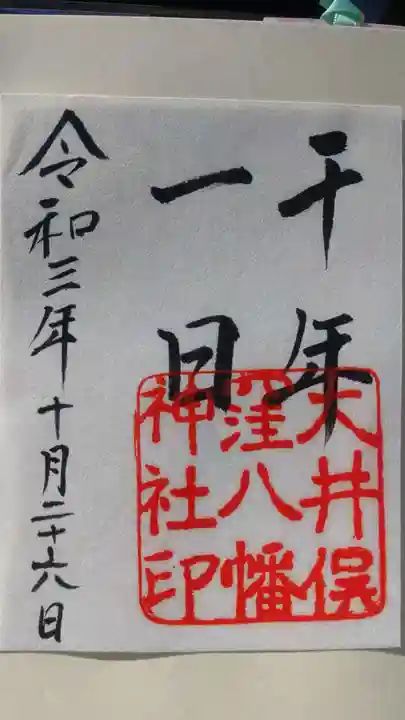 千年
一日
大井俣
窪八幡
神社印
令和三年十月二十六日